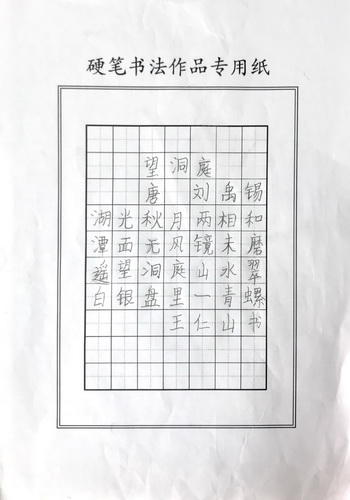 硬笔书法作品专用纸
望洞庭
唐 刘禹锡
湖光秋月两相和
潭面无风镜未磨
遥望洞庭山水翠
白银盘里一青螺
王仁山书